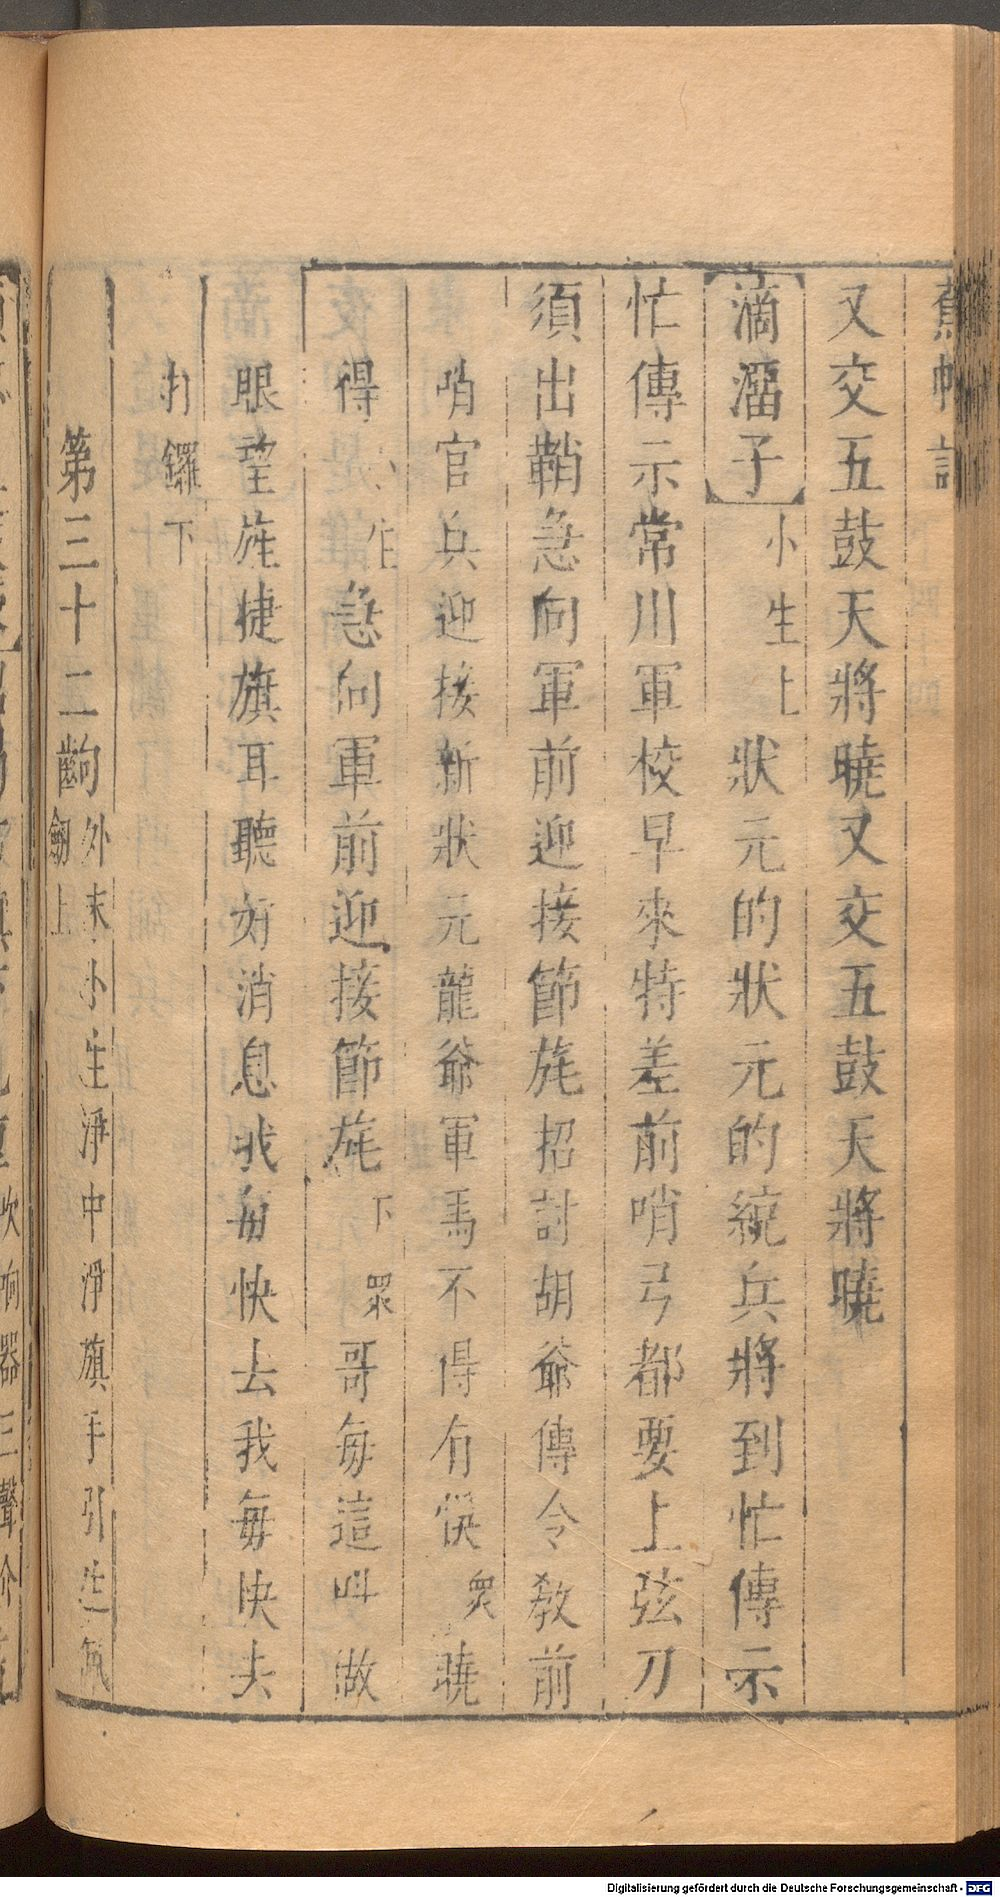 蕉帕記
又交五鼓天將曉又交五鼓天將曉
滴溜子 小生上 狀元的狀元的統兵將到忙傳示
忙傳示常川軍校早來特差前哨弓都要上弦刀
須出鞘急向軍前迎接節旄招討胡爺傳令教前
哨官兵迎接新狀元龍爺軍馬不得有悞 衆 曉
得 小生 急向軍前迎接節旄 下 眾 哥每這叫做
眼望旌捷旗耳聽好消息我每快去我每快去
打鑼下
第三十二齣 外末小生淨中淨旗手引生佩
劒上
Digitalisierung gefördert durch die Deutsche Forschungsgemeinschaft - DFG